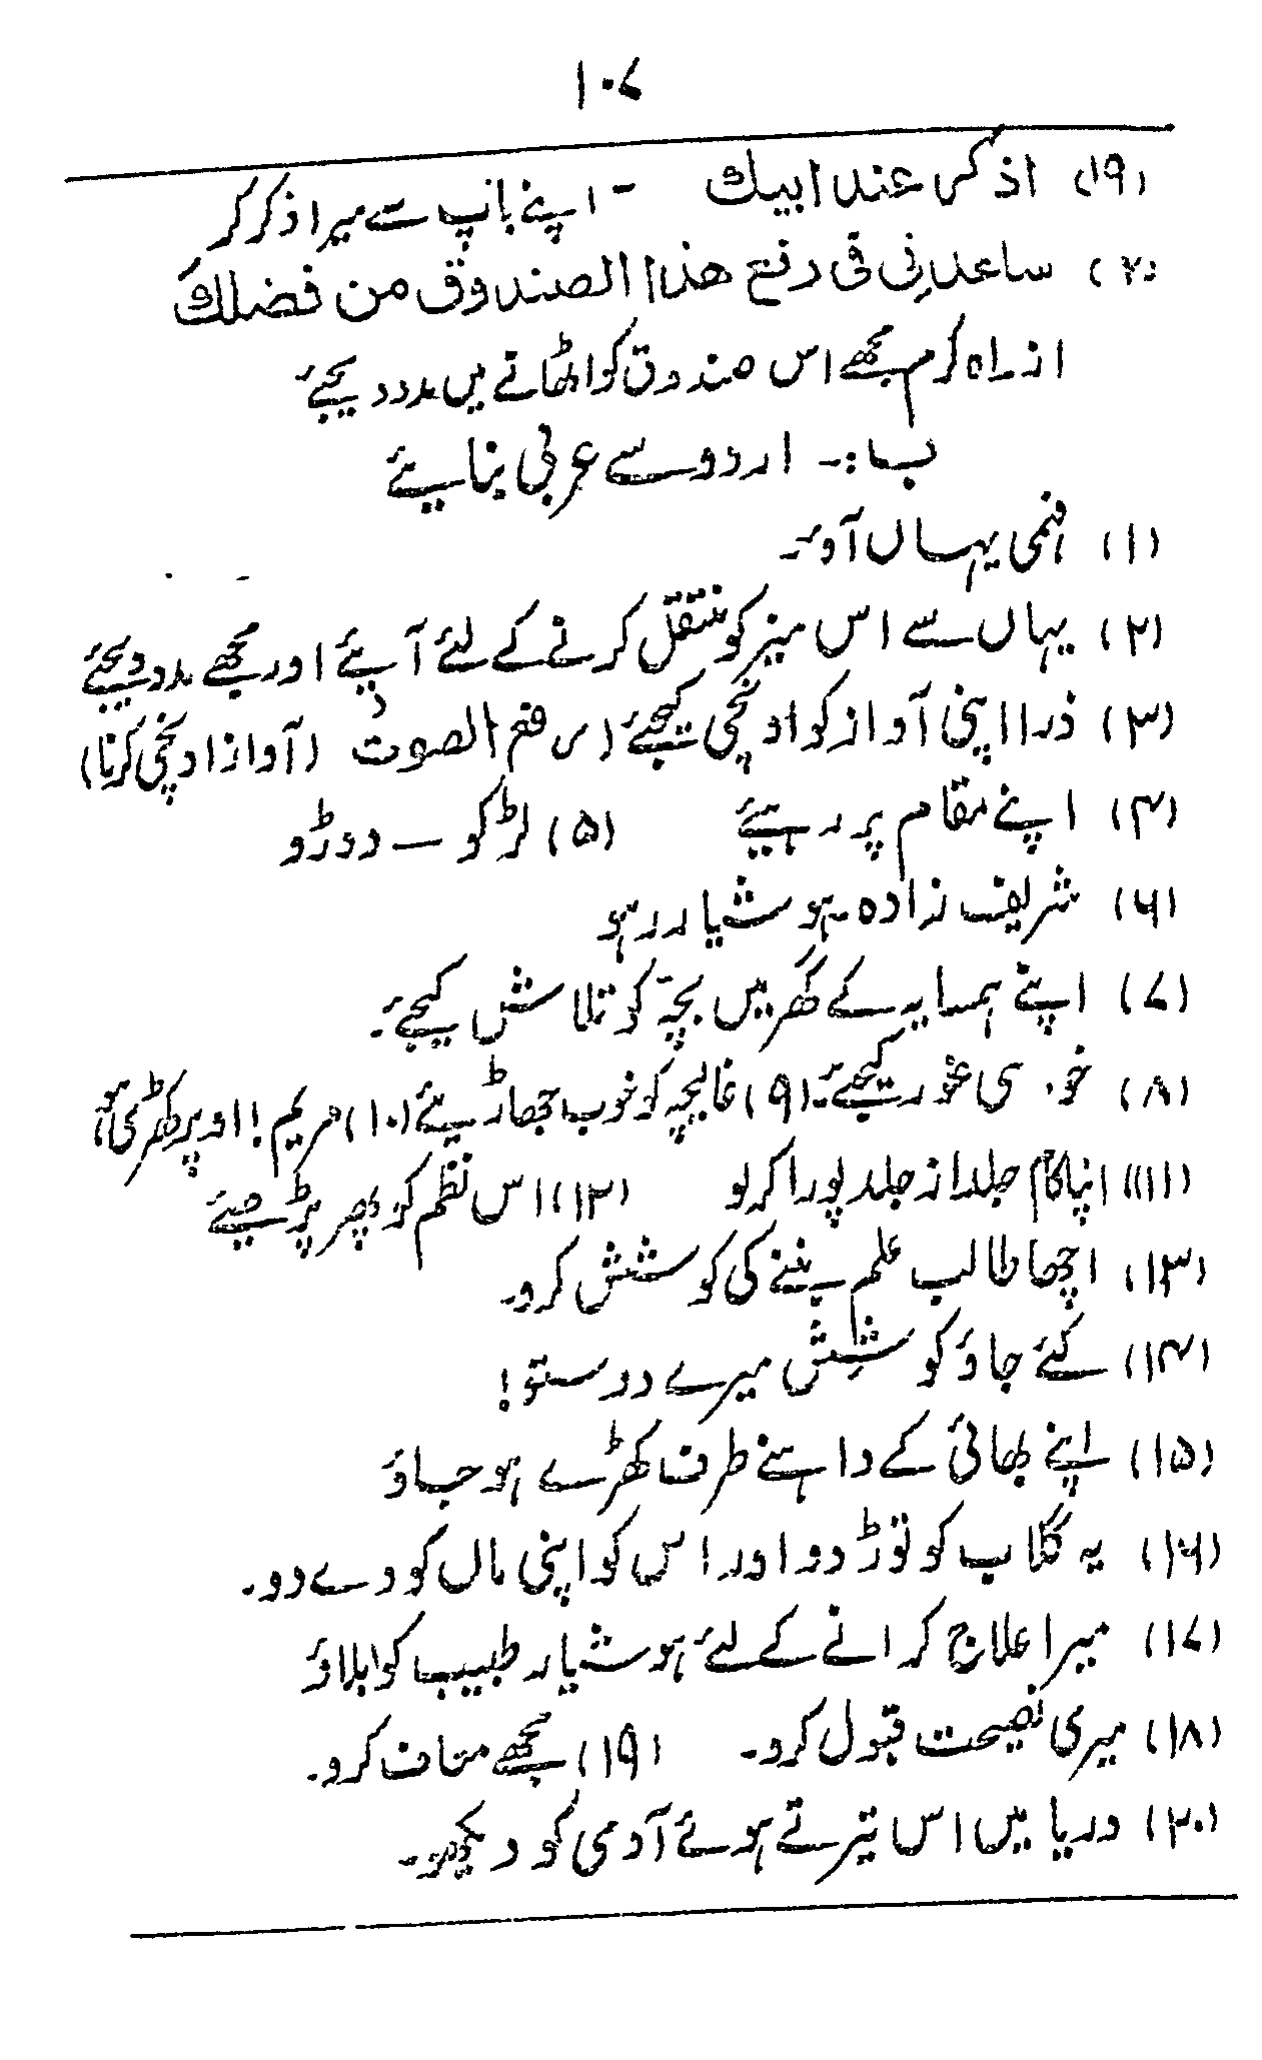 ۱۰۷
(۱۹) اذكر عند ابيك - اپنے باپ سے میرا ذکر کر
(۲۰) ساعدنِی فی رفع هذا الصندوق من فضلك
از راہ کرم مجھے اس صندوق کو اٹھانے میں مدد دیجئے
ب:۔ اردو سے عربی بنایئے
(۱) فہمی یہاں آوٴ۔
(۲) یہاں سے اس میز کو منتقل کرنے کے لئے آیئے اور مجھے مدد دیجئے
(۳) ذرا اپنی آواز کو اونچی کیجئے (رفع الصوت (آواز اونچی کرنا)
(۴) اپنے مقام پر رہیئے (۵) لڑکو — دوڑو
(۶) شریف زادہ۔ ہوشیار رہو
(۷) اپنے ہمسایہ کے گھر میں بچّہ کو تلاش کیجئے۔
(۸) خود سی غور کیجئے۔ (۹) غالیچہ کو خوب جھاڑیئے (۱۰) مریم! اوپر کھڑی ہو
(۱۱) اپنا کام جلد از جلد پورا کر لو (۱۲) اس نظم کو پھر پڑھیئے
(۱۳) اچھا طالب علم بننے کی کوشش کرو۔
(۱۴) کئے جاؤ کوشش میرے دوستو!
(۱۵) اپنے بھائی کے داہنے طرف کھڑے ہو جاؤ
(۱۶) یہ گلاب کو توڑ دو اور اس کو اپنی ماں کو دے دو۔
(۱۷) میرا علاج کرانے کے لئے ہوشیار طبیب کو بلاؤ
(۱۸) میری نصیحت قبول کرو۔ (۱۹) مجھے معاف کرو۔
(۲۰) دریا میں اس تیرتے ہوئے آدمی کو دیکھو۔